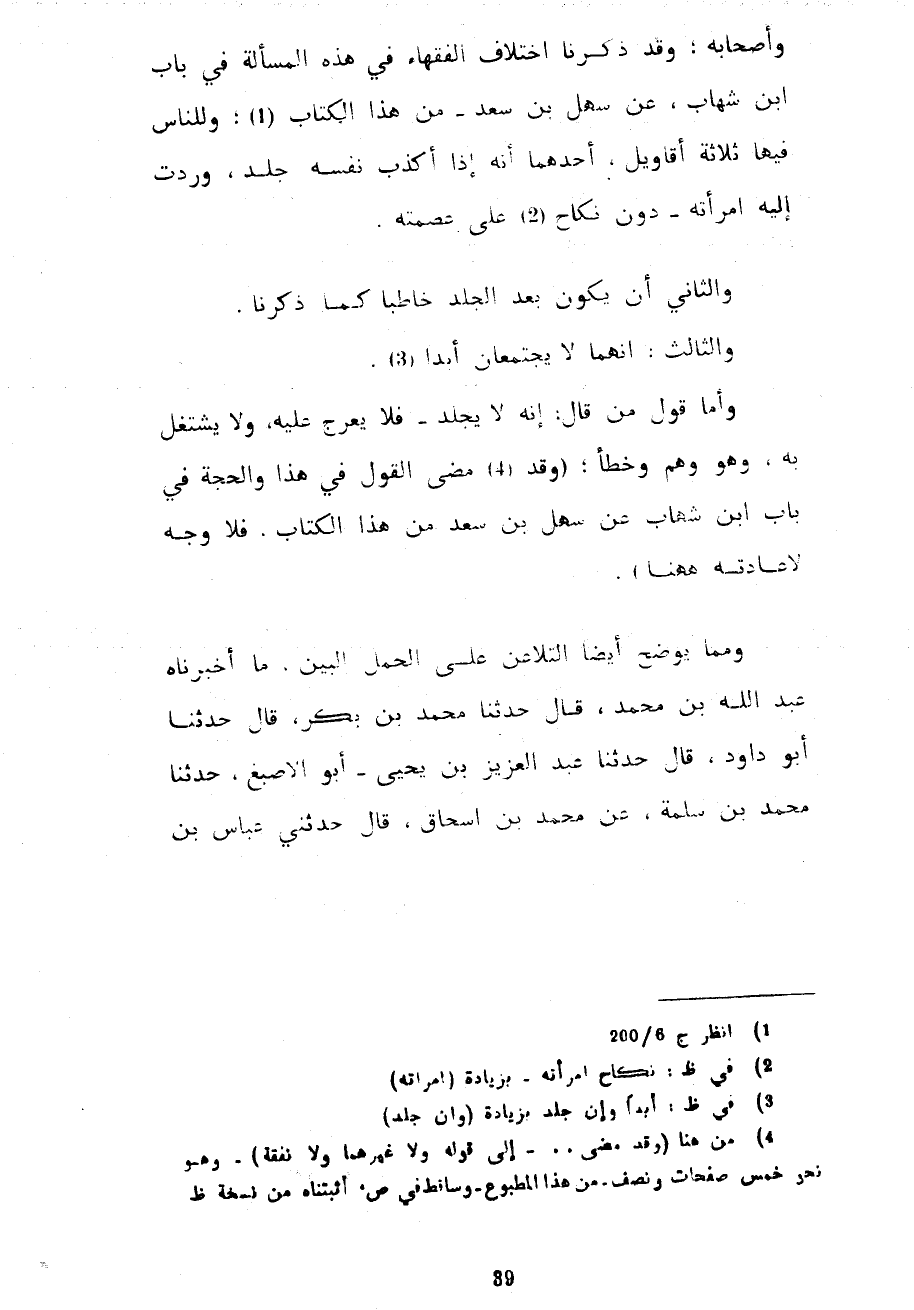 وأصحابه ؛ وقد ذكـرنا اختلاف الفقهاء في هذه المسألة في باب
ابن شهاب ، عن سهل بن سعد ـ من هذا الكتاب (1) ؛ وللناس
فيها ثلاثة أقاويل ، أحدهما أنه إذا أكذب نفسـه جلـد ، وردت
إليه امرأته ـ دون نكاح (2) على عصمته .
والثاني أن يكون بعد الجلد خاطبا كـمـا ذكرنا .
والثالث : انهما لا يجتمعان أبدا (3) .
وأما قول من قال: إنه لا يجلد ـ فلا يعرج عليه، ولا يشتغل
به ، وهو وهم وخطأ ؛ (وقد (4) مضى القول في هذا والحجة في
باب ابن شهاب عن سهل بن سعد من هذا الكتاب . فلا وجـه
لاعـادتـه ههنـا ) .
ومما يوضح أيضا التلاعن علـى الحمل البين . ما أخبرناه
عبد اللـه بن محمد ، قـال حدثنا محمد بن بكر، قال حدثنـا
أبو داود ، قال حدثنا عبد العزيز بن يحيى ـ أبو الاصبغ ، حدثنا
محمد بن سلمة ، عن محمد بن اسحاق ، قال حدثني عباس بن
1) انظر ج 200/6
2) في ظ : نكاح امرأته ـ بزيادة (امراته)
3) في ظ : أبداً وإن جلد بزيادة (وان جلد)
4) من هنا (وقد مضى . . ـ إلى قوله ولا غيرهما ولا نفقة) ـ وهـو
نحو خمس صفحات ونصف ـ من هذا المطبوع ـ وساقط في ص، أثبتناه من نسخة ظ
39